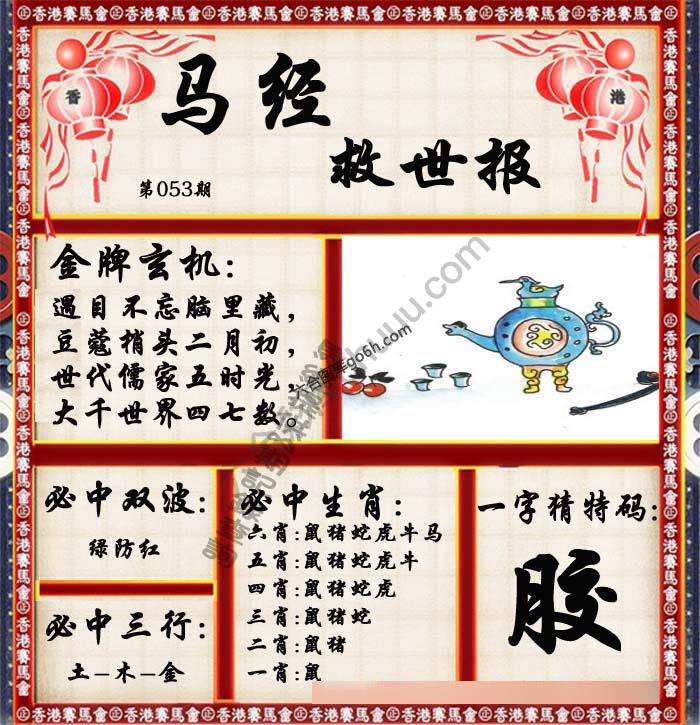 香港賽馬會
香 港
马经
救世报
第053期
金牌玄机：
遇目不忘脑里藏，
豆蔻梢头二月初，
世代儒家五时光，
大千世界四七数。
六合图库go6h.com
必中双波：
绿防红
必中三行：
土-木-金
必中生肖：
六肖:鼠猪蛇虎牛马
五肖:鼠猪蛇虎牛
四肖:鼠猪蛇虎
三肖:鼠猪蛇
二肖:鼠猪
一肖:鼠
一字猜特码：
胶